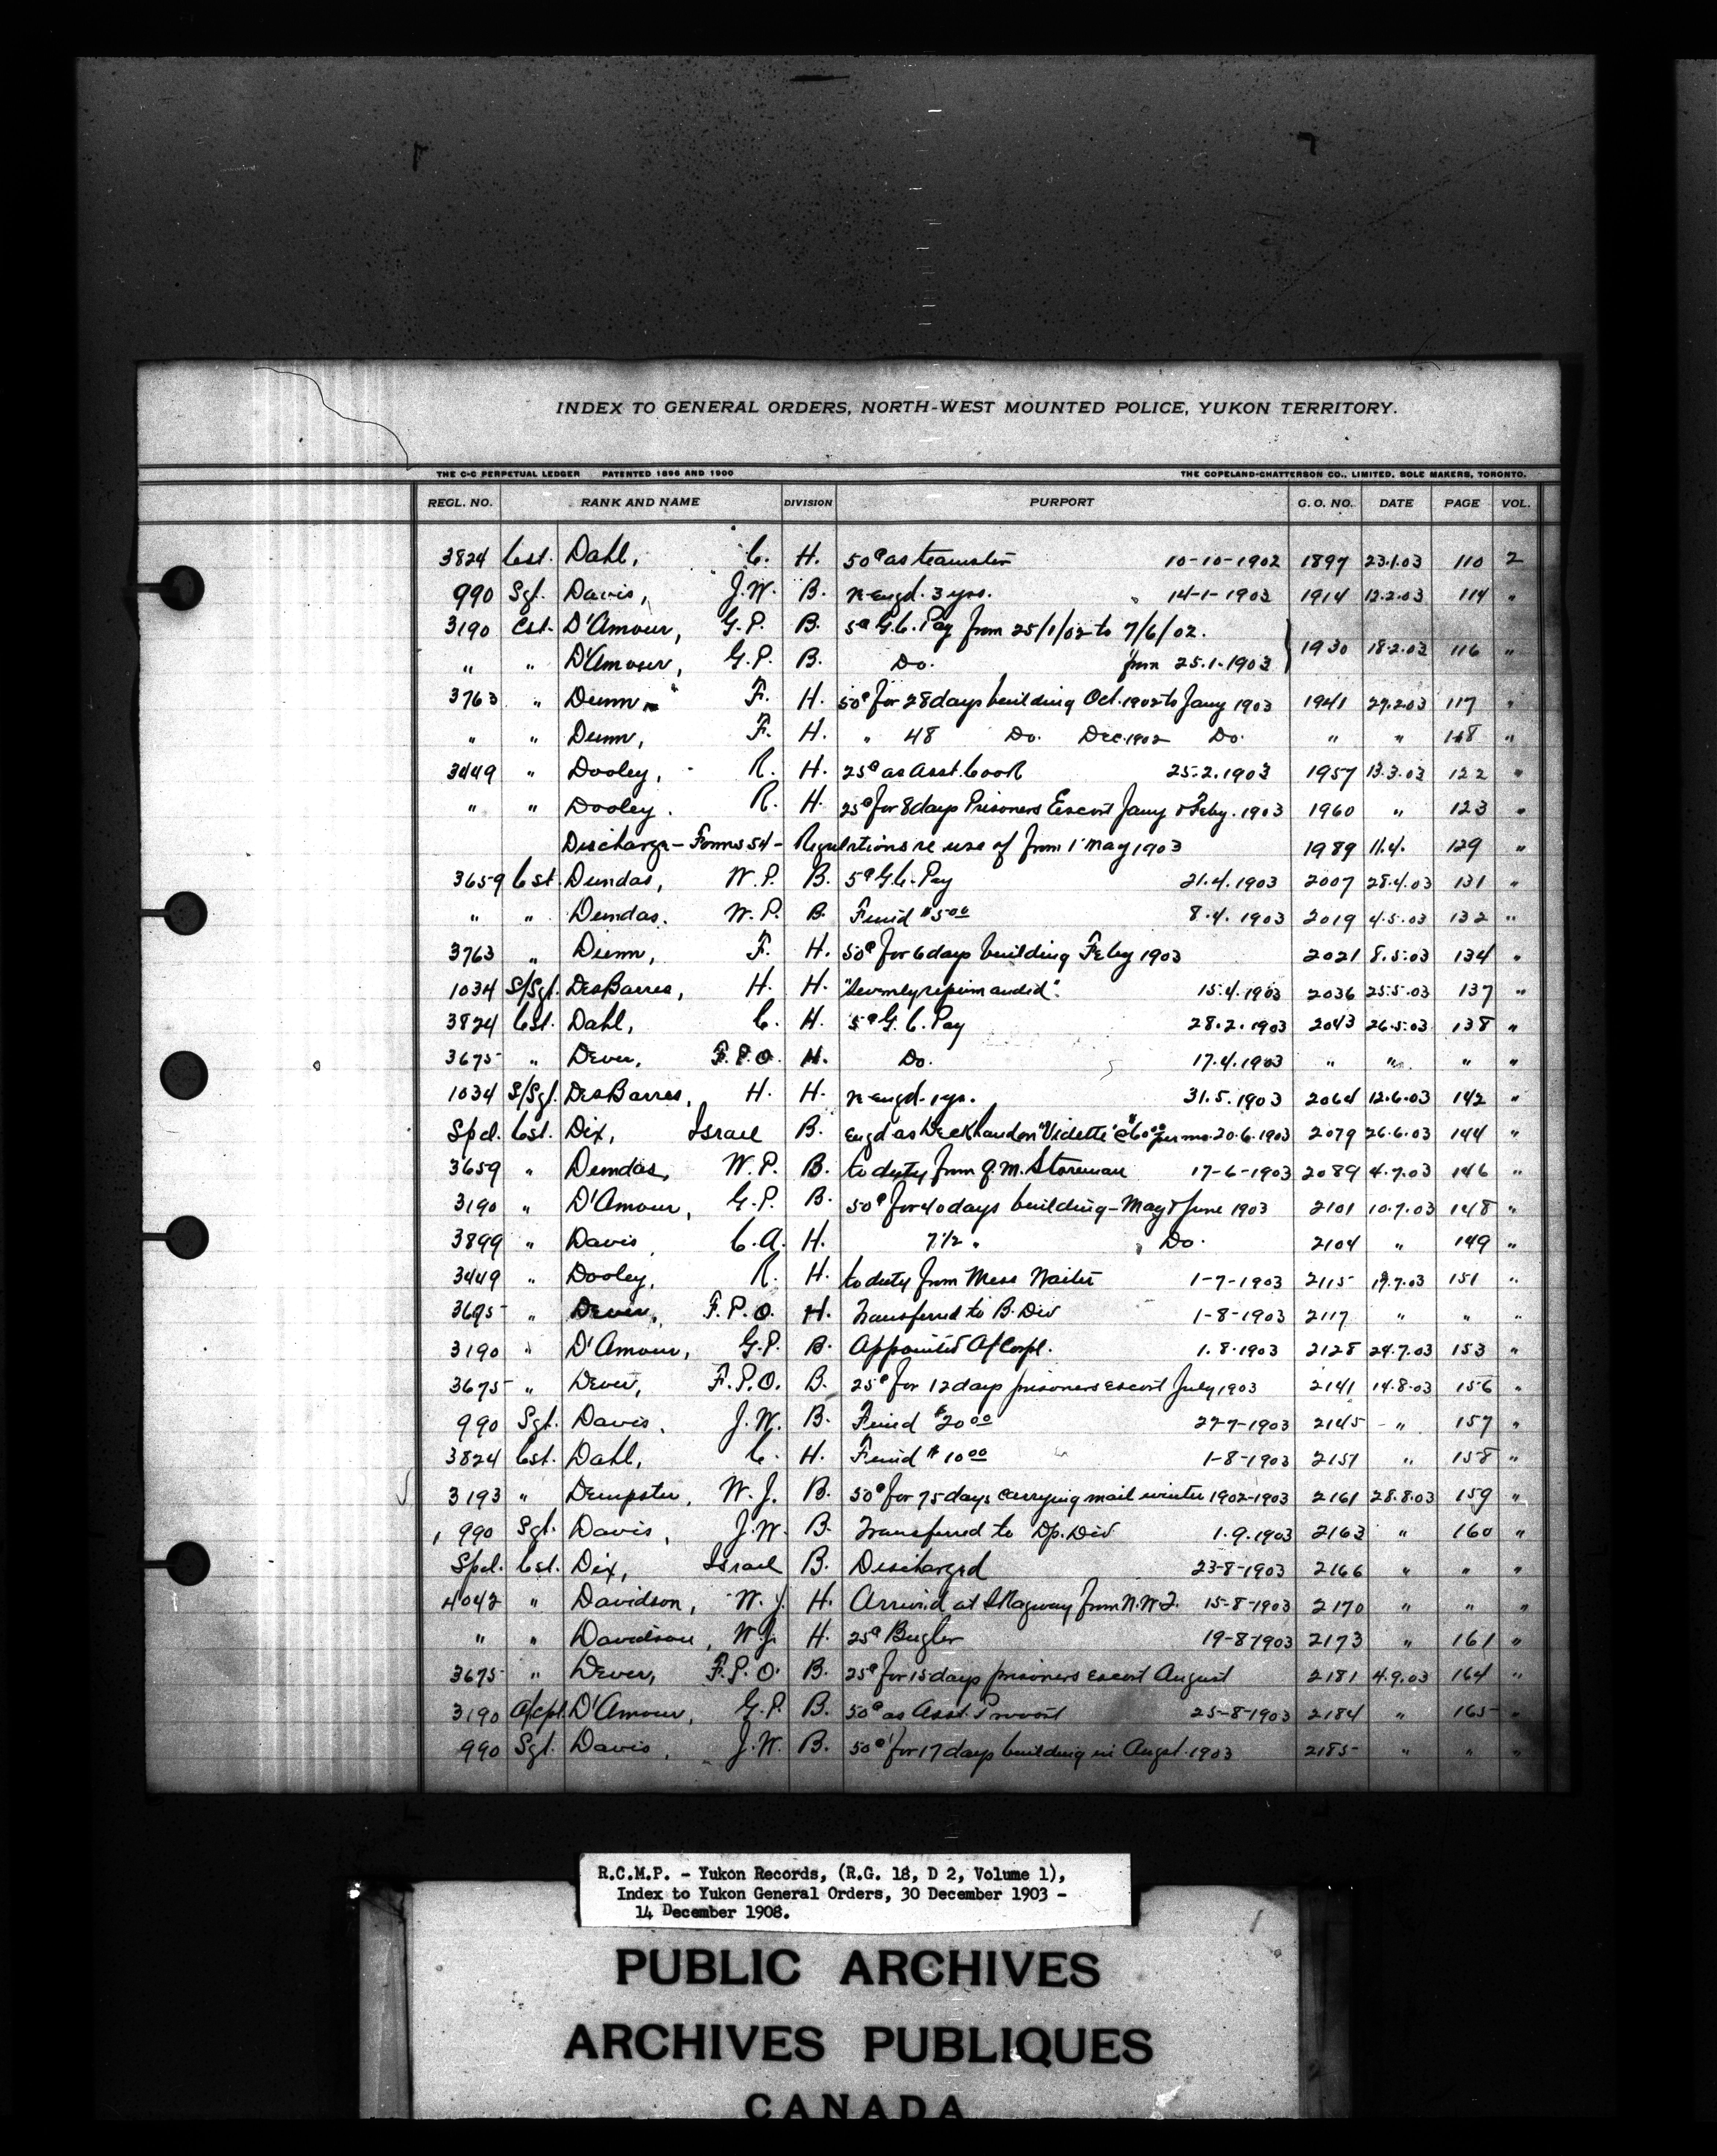 INDEX TO GENERAL ORDERS, NORTH-WEST MOUNTED POLICE, YUKON TERRITORY.
THE C-C PERPETUAL LEDGER PATENTED 1896 AND 1900 THE COPELAND-CHATTERSON CO., LIMITED. SOLE MAKERS, TORONTO.
REGL. NO. RANK AND NAME DIVISION PURPORT G. O. NO. DATE PAGE VOL.
3824 Cst. Dahl, C. H. 50¢ as teamster 10-10-1902 1897 23.1.03 110 2
990 Sgt. Davis, J.W. B. re-engd. 3 yrs. 14-1-1903 1914 12.2.03 114 "
3190 Cst. D'Amour, G.P. B. 5¢ G.C. Pay from 25/1/02 to 7/6/02.
" " D'Amour, G.P. B. Do. from 25.1.1903 1930 18.2.03 116 "
3763 " Dunn, F. H. 50¢ for 28 days building Oct. 1902 to Jany 1903 1941 27.2.03 117 "
" " Dunn, F. H. " 48 Do. Dec. 1902 Do. " " 118 "
3449 " Dooley, R. H. 25¢ as Asst. Cook 25.2.1903 1957 13.3.03 122 "
" " Dooley. R. H. 25¢ for 8 days Prisoners Escort Jany & Feby. 1903 1960 " 123 "
Discharge - Forms 54 - Regulations re use of from 1 May 1903 1989 11.4. 129 "
3659 Cst Dundas, W.P. B. 5¢ G.C. Pay 21.4.1903 2007 28.4.03 131 "
" " Dundas. W.P. B. Fined $5.00 8.4.1903 2019 4.5.03 132 "
3763 " Dunn, F. H. 50¢ for 6 days building Feby 1903 2021 8.5.03 134 "
1034 S/Sgt. DesBarres, H. H. "Severely reprimanded". 15.4.1903 2036 25.5.03 137 "
3824 Cst. Dahl, C. H. 5¢ G.C. Pay 28.2.1903 2043 26.5.03 138 "
3675 " Dever, F.P.O. H. Do. 17.4.1903 " " " "
1034 S/Sgt. DesBarres, H. H. re-engd. 1 yr. 31.5.1903 2064 12.6.03 142 "
Spcl. Cst. Dix, Israel B. Engd as Deckhand on "Vidette" @ $60.00 per mo. 20.6.1903 2079 26.6.03 144 "
3659 " Dundas, W.P. B. to duty from Q.M. Storeman 17-6-1903 2089 4.7.03 146 "
3190 " D'Amour, G.P. B. 50¢ for 40 days building - May & June 1903 2101 10.7.03 148 "
3899 " Davis, C.A. H. 7½ " Do. 2104 " 149 "
3449 " Dooley, R. H. to duty from Mess Waiter 1-7-1903 2115 17.7.03 151 "
3675 " Dever, F.P.O. H. Transferred to B. Div 1-8-1903 2117 " " "
3190 " D'Amour, G.P. B. Appointed A/Corpl. 1.8.1903 2128 24.7.03 153 "
3675 " Dever, F.P.O. B. 25¢ for 12 days prisoners escort July 1903 2141 14.8.03 156 "
990 Sgt. Davis. J.W. B. Fined $20.00 27-7-1903 2145 " 157 "
3824 Cst. Dahl, C. H. Fined $10.00 1-8-1903 2151 " 158 "
3193 " Dempster, W.J. B. 50¢ for 75 days carrying mail winter 1902-1903 2161 28.8.03 159 "
990 Sgt. Davis, J.W. B. Transferred to Dp. Div 1.9.1903 2163 " 160 "
Spcl. Cst. Dix, Israel B. Discharged 23-8-1903 2166 " " "
4042 " Davidson, W.J. H. Arrived at Skagway from N.W.T. 15-8-1903 2170 " " "
" " Davidson, W.J. H. 25¢ Bugler 19-8-1903 2173 " 161 "
3675 " Dever, F.P.O. B. 25¢ for 15 days prisoners escort August 2181 4.9.03 164 "
3190 A/Cpl D'Amour, G.P. B. 50¢ as Asst. Provost 25-8-1903 2184 " 165 "
990 Sgt. Davis, J.W. B. 50¢ for 17 days building in Augst. 1903 2185 " " "
R.C.M.P. - Yukon Records, (R.G. 18, D 2, Volume 1),
Index to Yukon General Orders, 30 December 1903 -
14 December 1908.
PUBLIC ARCHIVES
ARCHIVES PUBLIQUES
CANADA